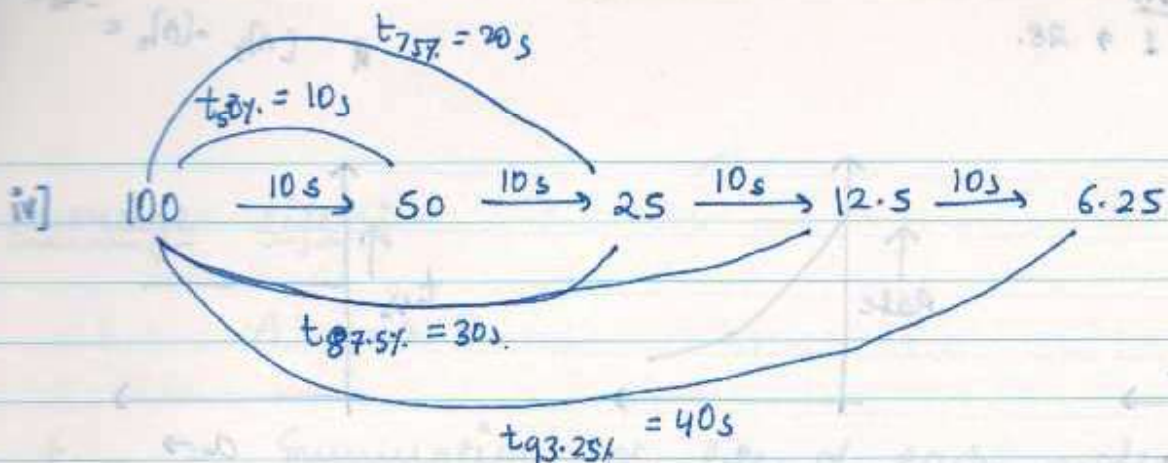 t75% = 20s
t50% = 10s
iv] 100 10s → 50 10s → 25 10s → 12.5 10s → 6.25
t87.5% = 30s.
t93.25% = 40s